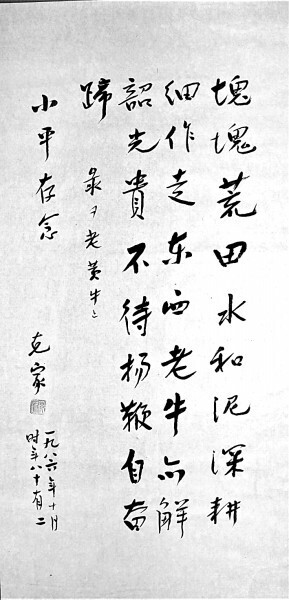 塊塊荒田水和泥深耕
细作走东西老牛亦解
韶光貴不待扬鞭自奋
蹄
录「老黄牛」
小平存念
克家
一九八六年十月
时年八十有二